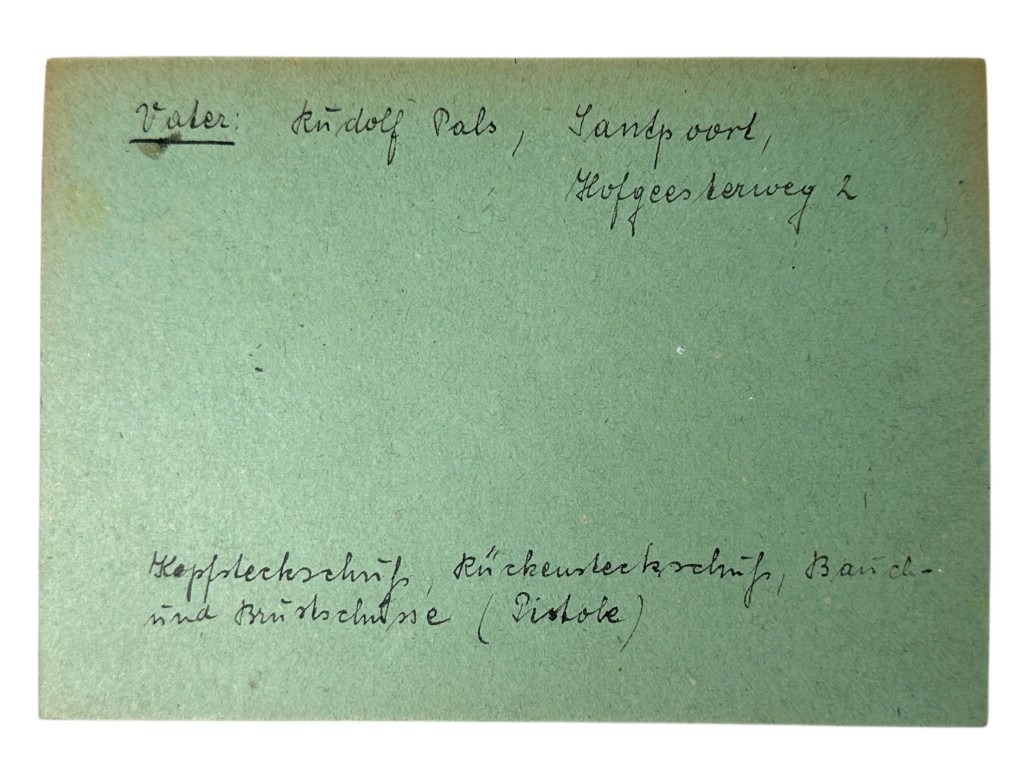 Vater: Rudolf Pals, Santpoort,
Hofgeesterweg 2
Kopfsteckschuß, Rückensteckschuß, Bauch-
und Brustschüsse (Pistole)